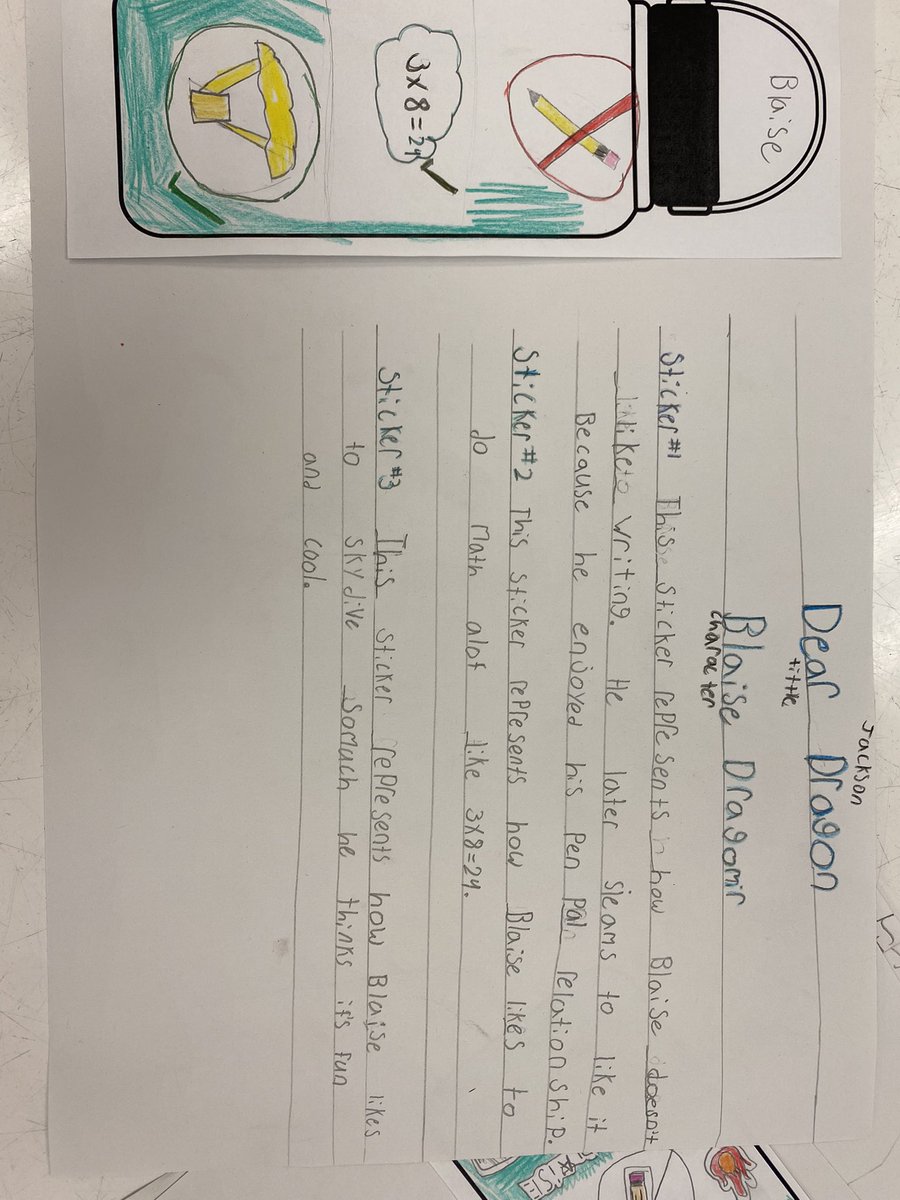 Jackson
Dear Dragon
tittle
Blaise Dragomir
character
Sticker #1 This sticker represents how Blaise doesn't
like to writing. He later sleams to like it
Because he enjoyed his pen pal relationship.
Sticker #2 This sticker represents how Blaise likes to
do math alot like 3x8=24.
Sticker #3 This sticker represents how Blaise likes
to skydive somach he thinks it's fun
and cool.
Blaise
3x8=24